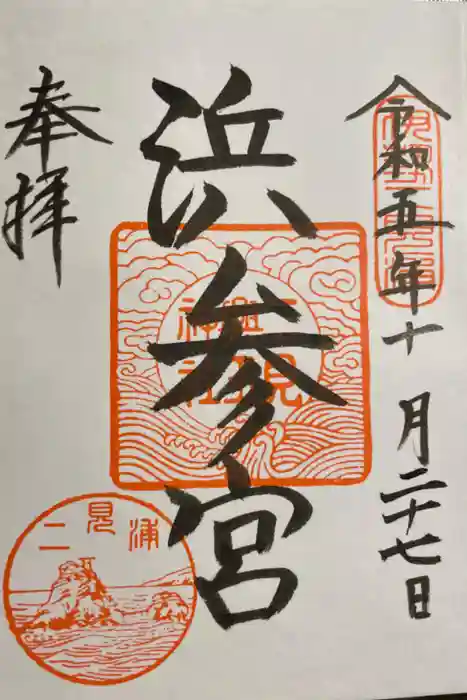 令和五年十月二十七日
浜参宮
奉拝
二見浦
二見興玉神社